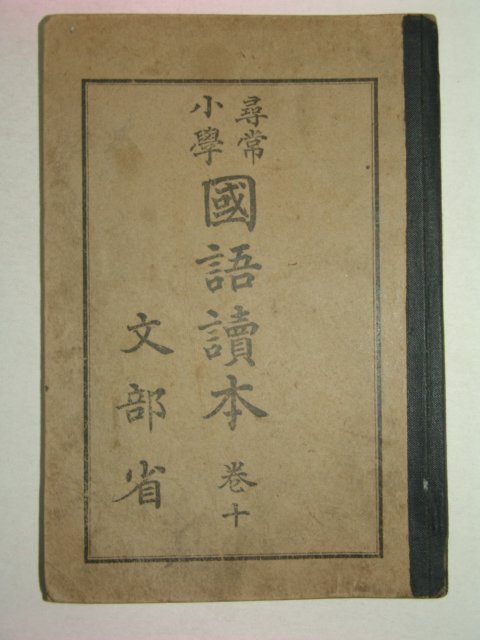 尋常
小學
國語讀本
卷十
文部省